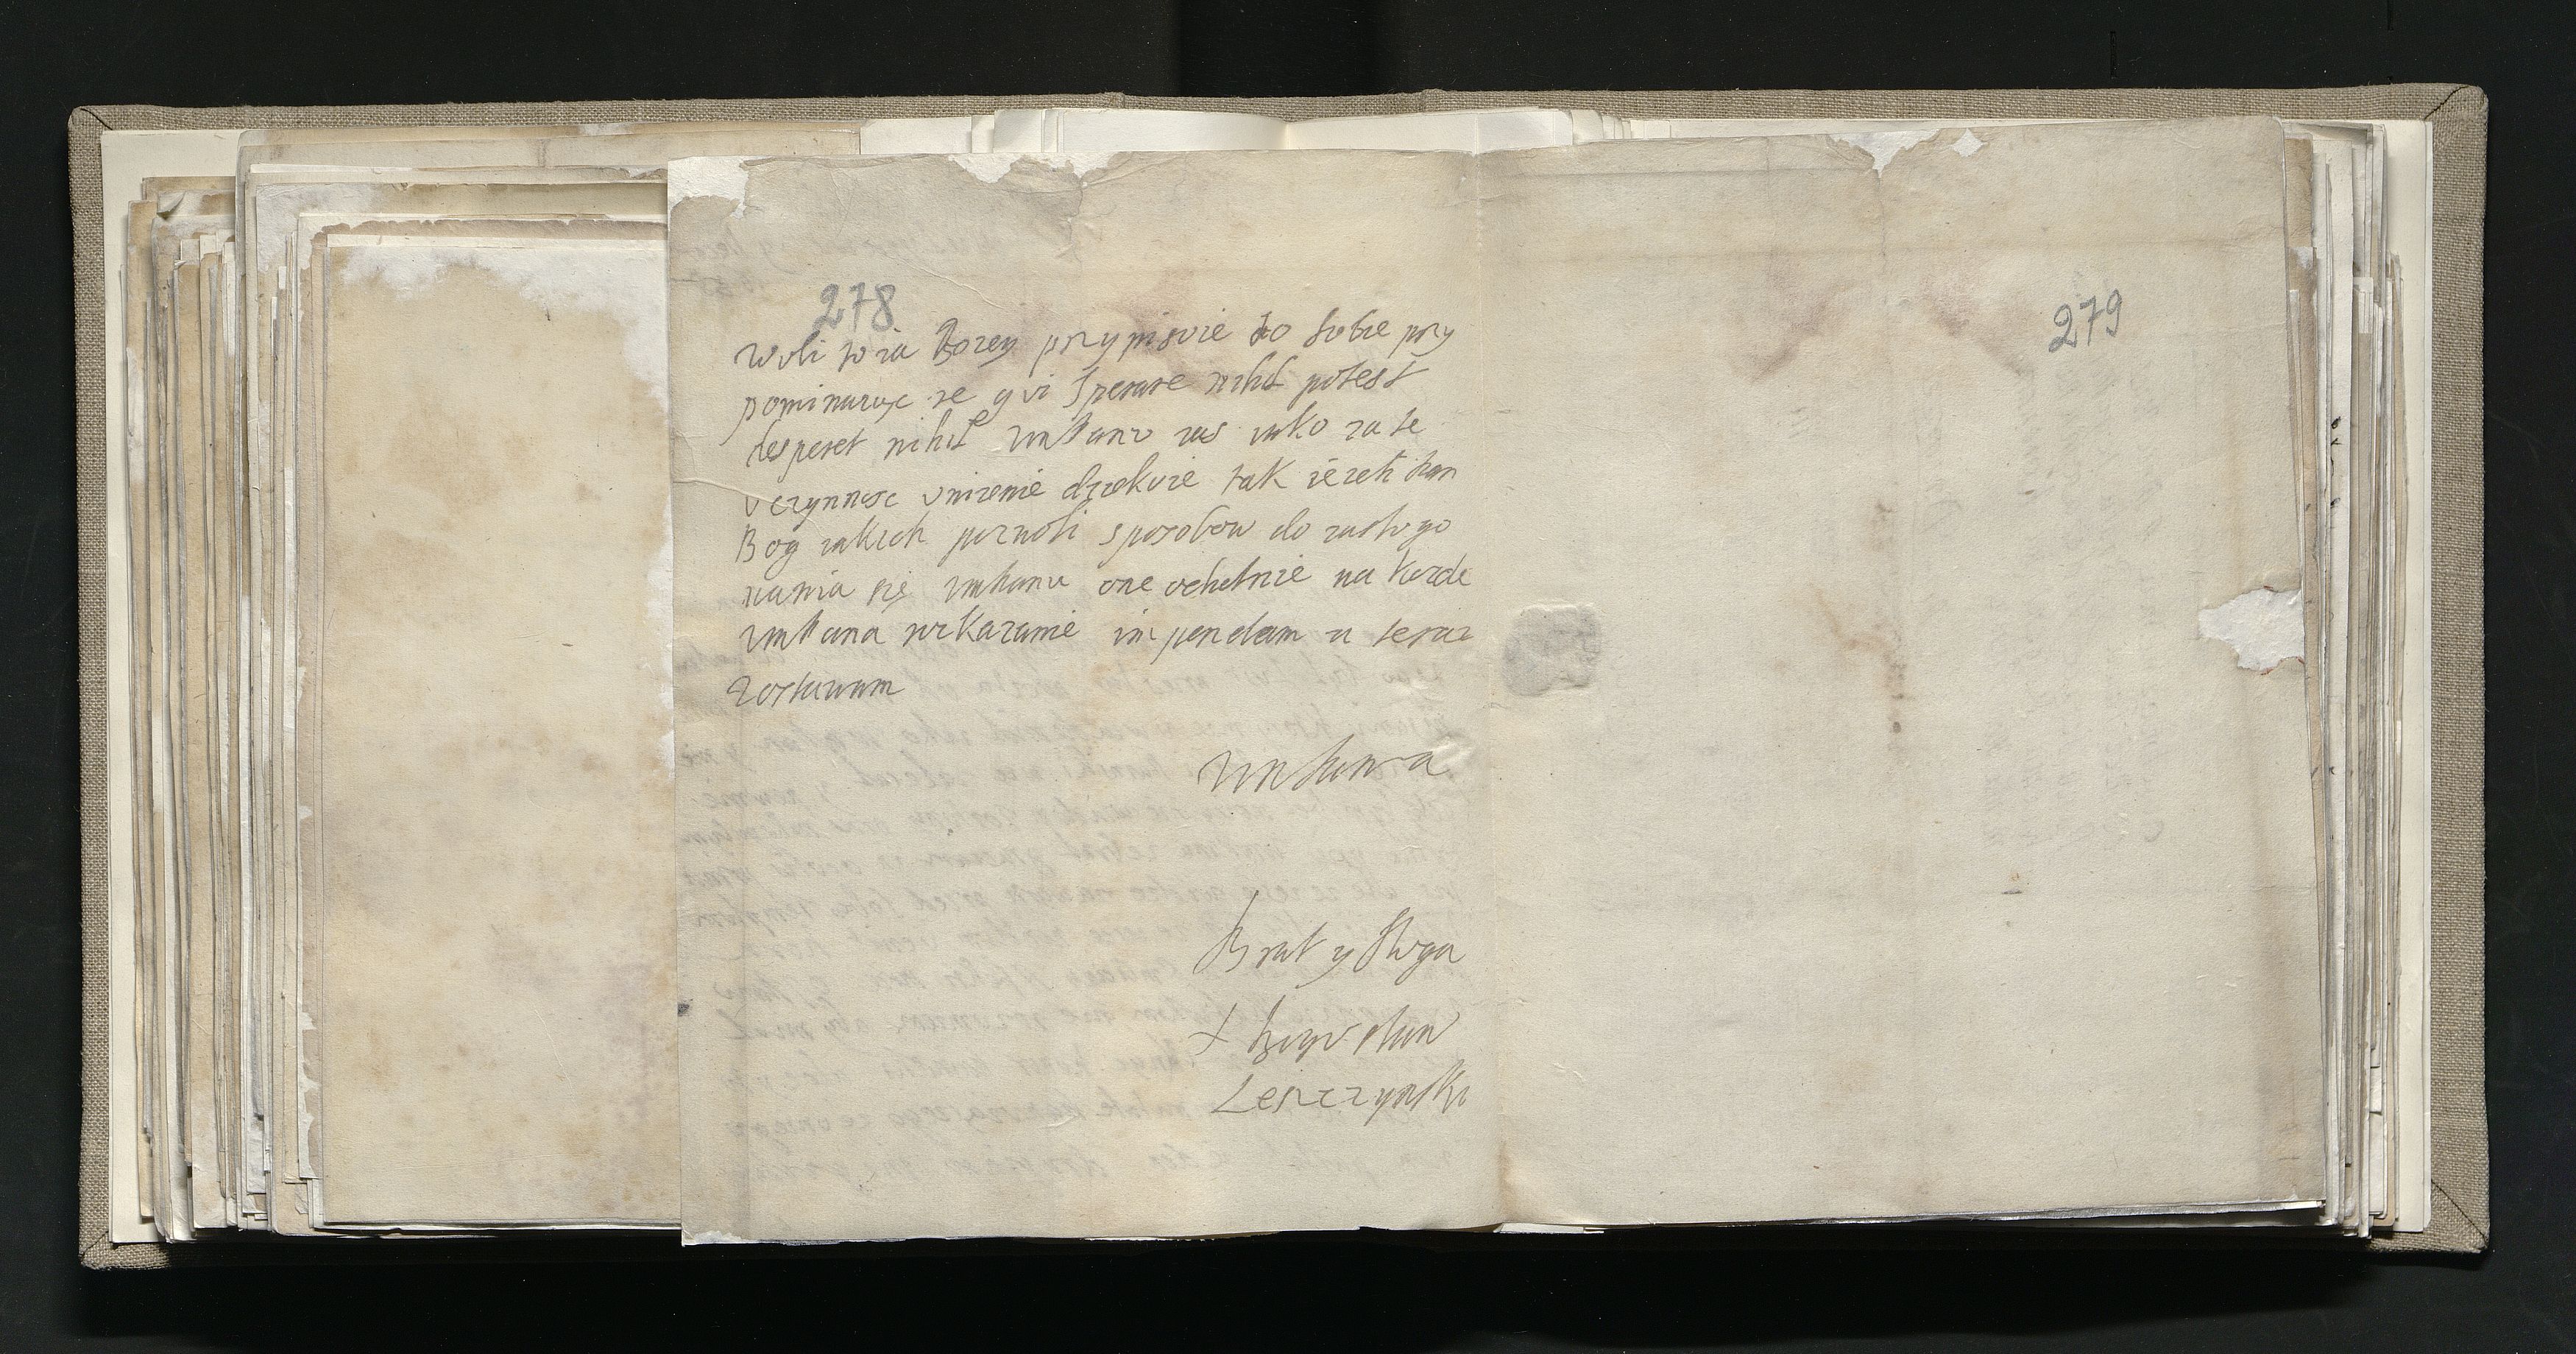 278
woli to ia Bozey przypisuie to sobie przy
pominaiąc ze qvi Sperare nihil potest
desperet nihil wmPanu zas iako za te
vczynnosc vnizenie dziekuie tak iezeli Pan
Bog iakich pozwoli sposobow do zasługo
wania się wmPanu one ochotnie na kazde
wmPana wskazanie impendam a teraz
Zostawam
wmPana
Brat y Sługa
Leszczynski
279